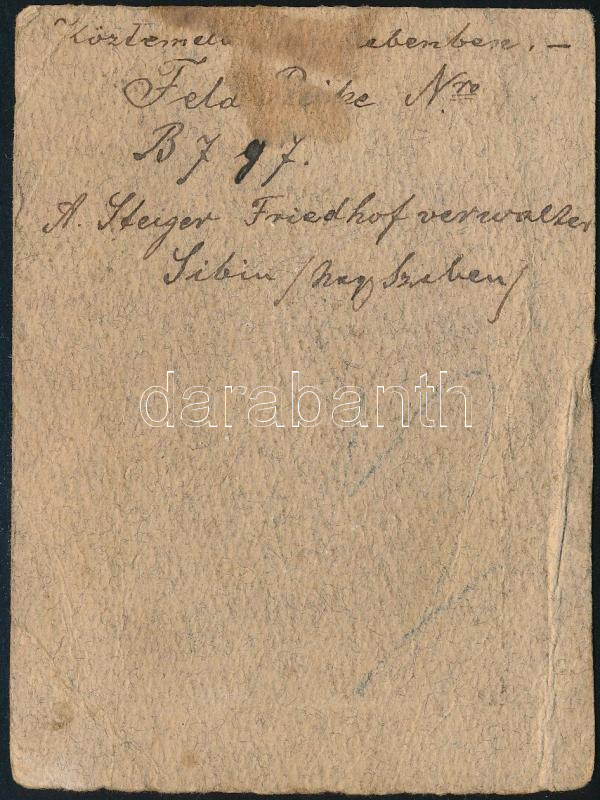 Köztemető ebenben. –
Feld Reihe Nro
B 7 97.
A. Steiger Friedhof verwalter
Sibiu / Nagy Szeben /
darabanth